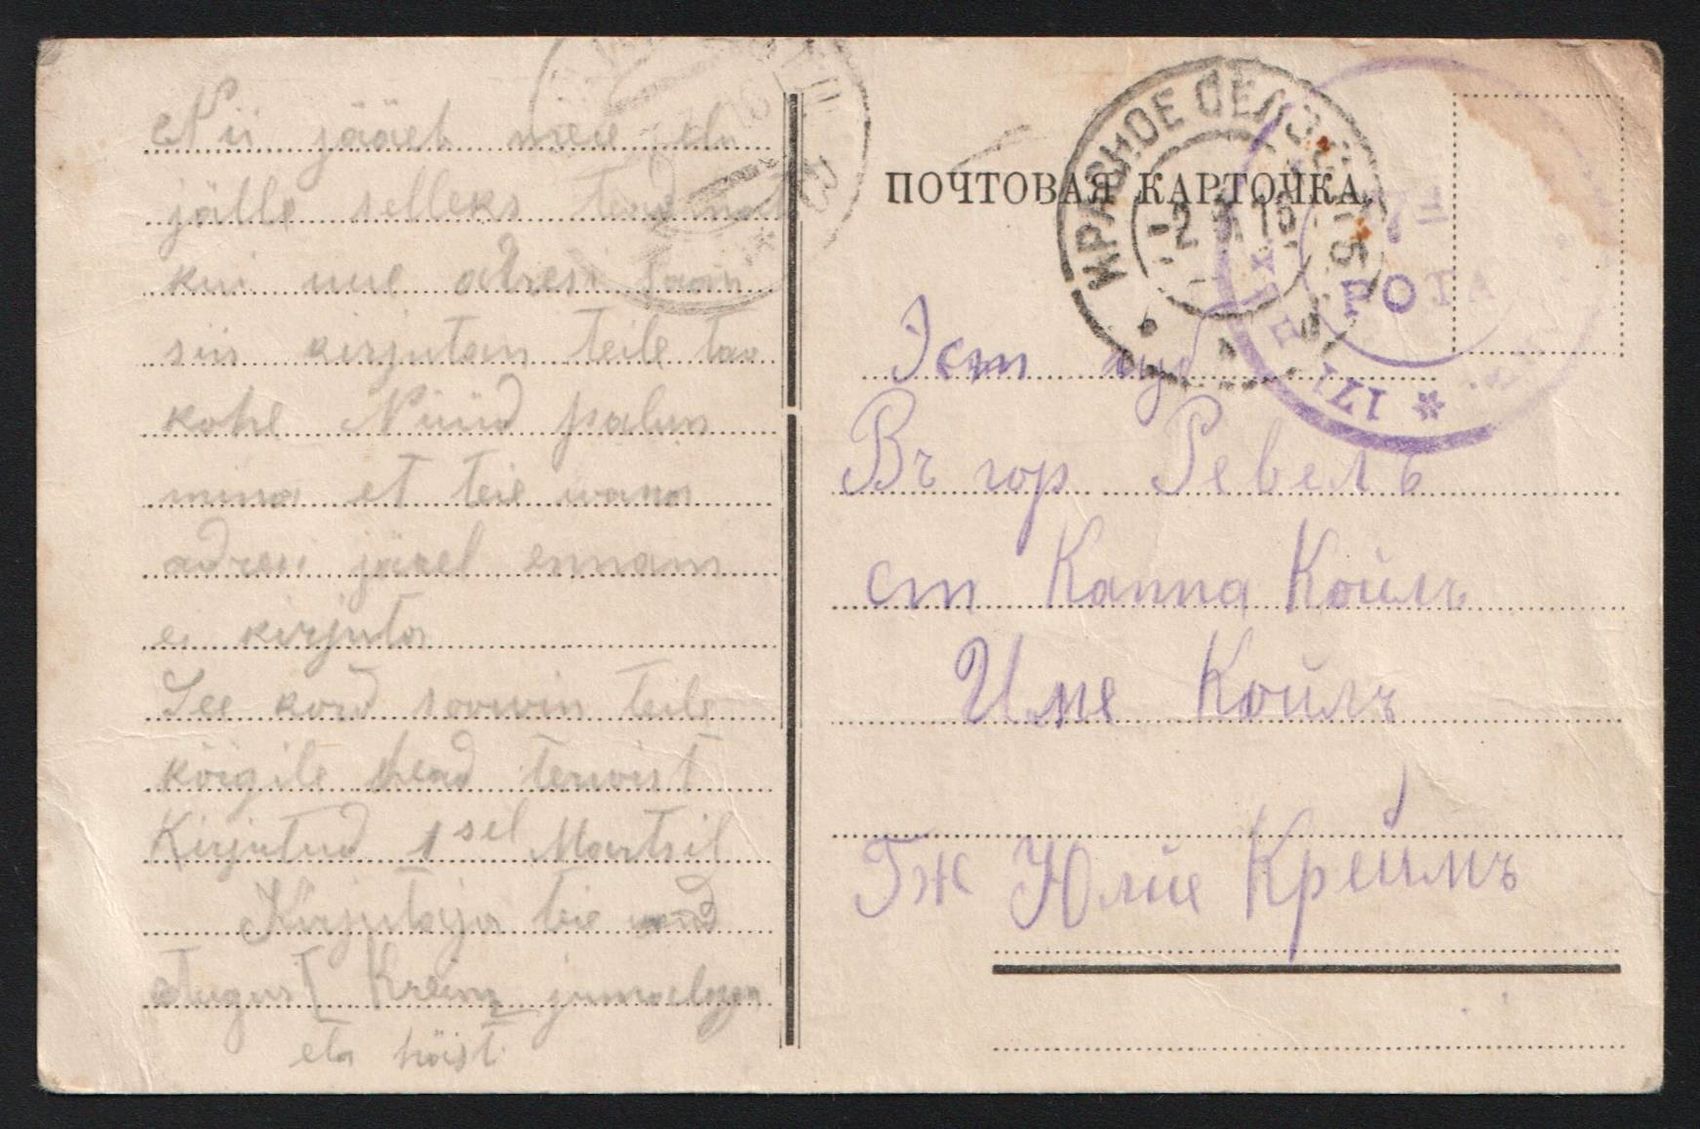 Nii jääeb meie elu
jälle selleks teadmat
kui uue adresi saan
siis kirjutan teile taa
kohe Nüüd palun
mina et teie wana
adresi järel ennam
ei kirjuta
See kord soowin teile
kõigile head terwist
Kirjutud 1sel Martsil
Kirjutaja teie
August Kreim jumalaga
ПОЧТОВАЯ КАРТОЧКА
КРАСНОЕ СЕЛО
-2 3 16
РОТА
171
Эст губ
Въ гор Ревель
ст Каппа Койлъ
Име Койлъ
Гж Юлiе Креймъ